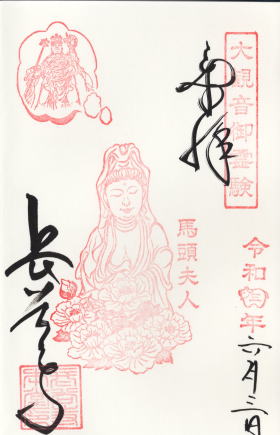 大観音御霊験
奉拝
馬頭夫人
令和四年
六月三日
長谷寺